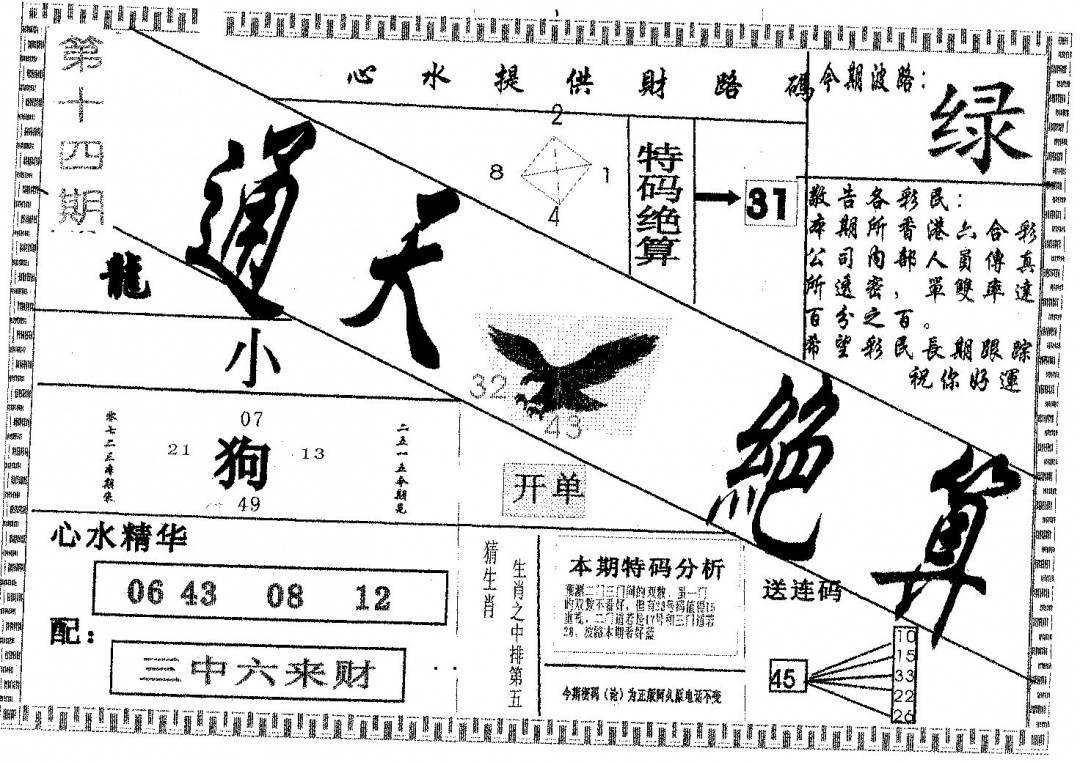 第十四期
心水提供財路碼
今期波路：
绿
通天絕算
龍
2
8
1
4
特码绝算
31
敬告各彩民：
本期所香港六合彩
公司内部人員傳真
所透密，單雙率達
百分之百。
希望彩民長期跟踪
祝你好運
小
32
43
开单
07
21
狗
13
49
零七二三本期来
二五一五今期见
心水精华
06 43 08 12
配：
三中六来财
猜生肖
生肖之中排第五
本期特码分析
送连码
45
10
15
33
22
26